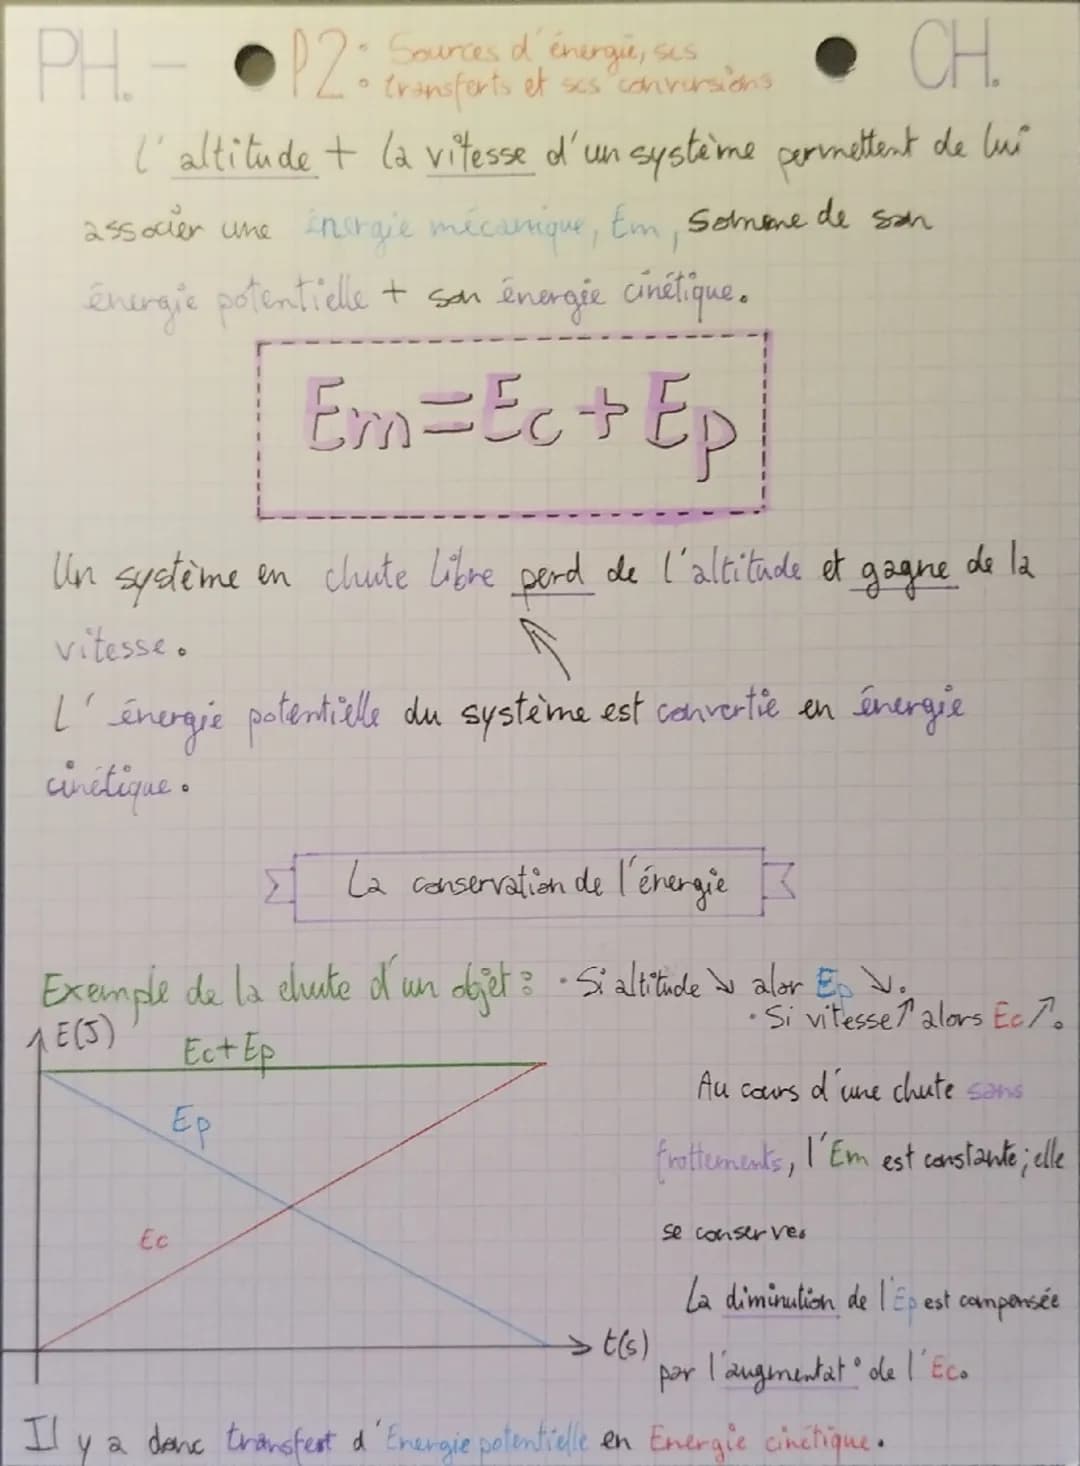 PH. - P2: Sources d'énergie, ses CH.
transferts et ses conversions
L'altitude + la vitesse d'un système permettent de lui
associer une énergie mécanique, Em, somme de son
énergie potentielle + son énergie cinétique.
Em=Ec+Ep
Un système en chute libre perd de l'altitude et gagne de la
vitesse.
L'énergie potentielle du système est convertie en énergie
cinétique.
La conservation de l'énergie
Exemple de la chute d'un objet : · Si altitude ↘ alor Ep ↘.
· Si vitesse ↗ alors Ec ↗.
E(J)
Ec+Ep
Ep
Ec
t(s)
Au cours d'une chute sans
frottements, l'Em est constante; elle
se conserve.
La diminution de l'Ep est compensée
par l'augmentat° de l'Ec.
Il y a donc transfert d'Energie potentielle en Energie cinétique.